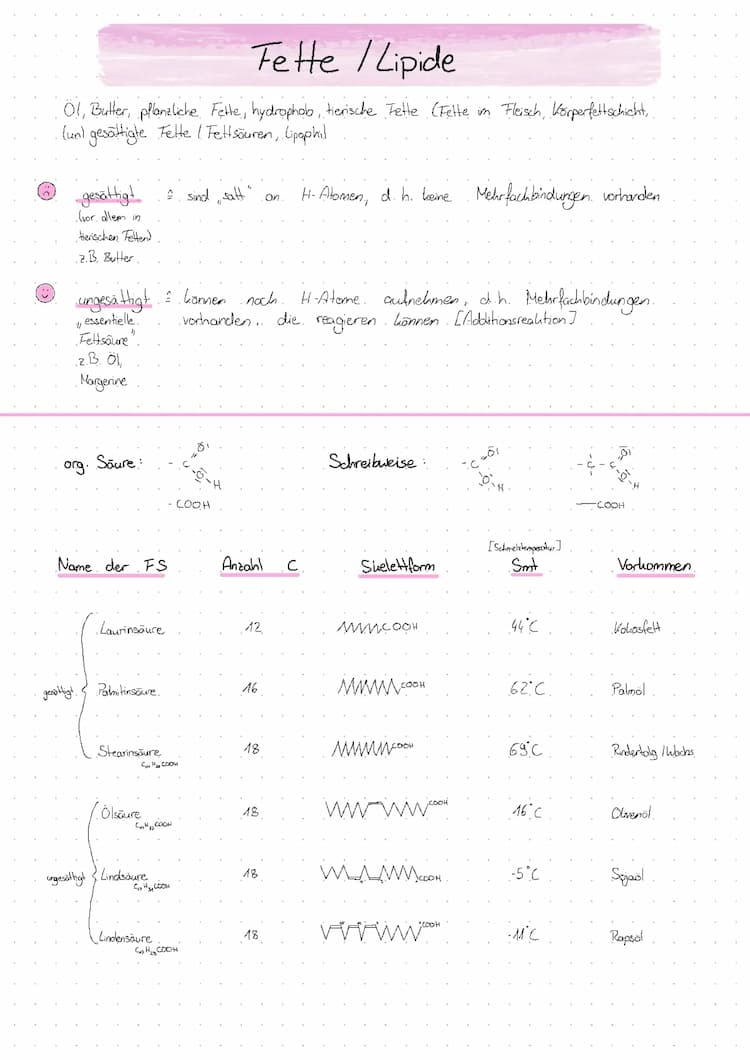 Fette / Lipide
Öl, Butter, pflanzliche Fette, hydrophob, tierische Fette (Fette im Fleisch, Körperfettschicht,
(un) gesättigte Fette / Fettsäuren, lipophil
gesättigt ≙ sind „satt" an H-Atomen, d. h. keine Mehrfachbindungen vorhanden
(vor allem in
tierischen Fetten)
z.B. Butter
ungesättigt ≙ können noch H-Atome aufnehmen, d.h. Mehrfachbindungen
„essentielle vorhanden, die reagieren können [Additionsreaktion]
Fettsäure"
z.B. Öl,
Margerine
org. Säure: - C O O H
- COOH
Schreibweise: - C O O H
- C - C O O H
COOH
[Schmelztemperatur]
Name der FS Anzahl C Skelettform Smt Vorkommen
gesättigt
Laurinsäure 12 COOH 44°C Kokosfett
Palmitinsäure 16 COOH 62°C Palmöl
Stearinsäure 18 COOH 69°C Rindertalg / Wachs
COOH
ungesättigt
Ölsäure 18 COOH 16°C Olivenöl
COOH
Linolsäure 18 COOH -5°C Sojaöl
COOH
Linolensäure 18 COOH -11°C Rapsöl
COOH